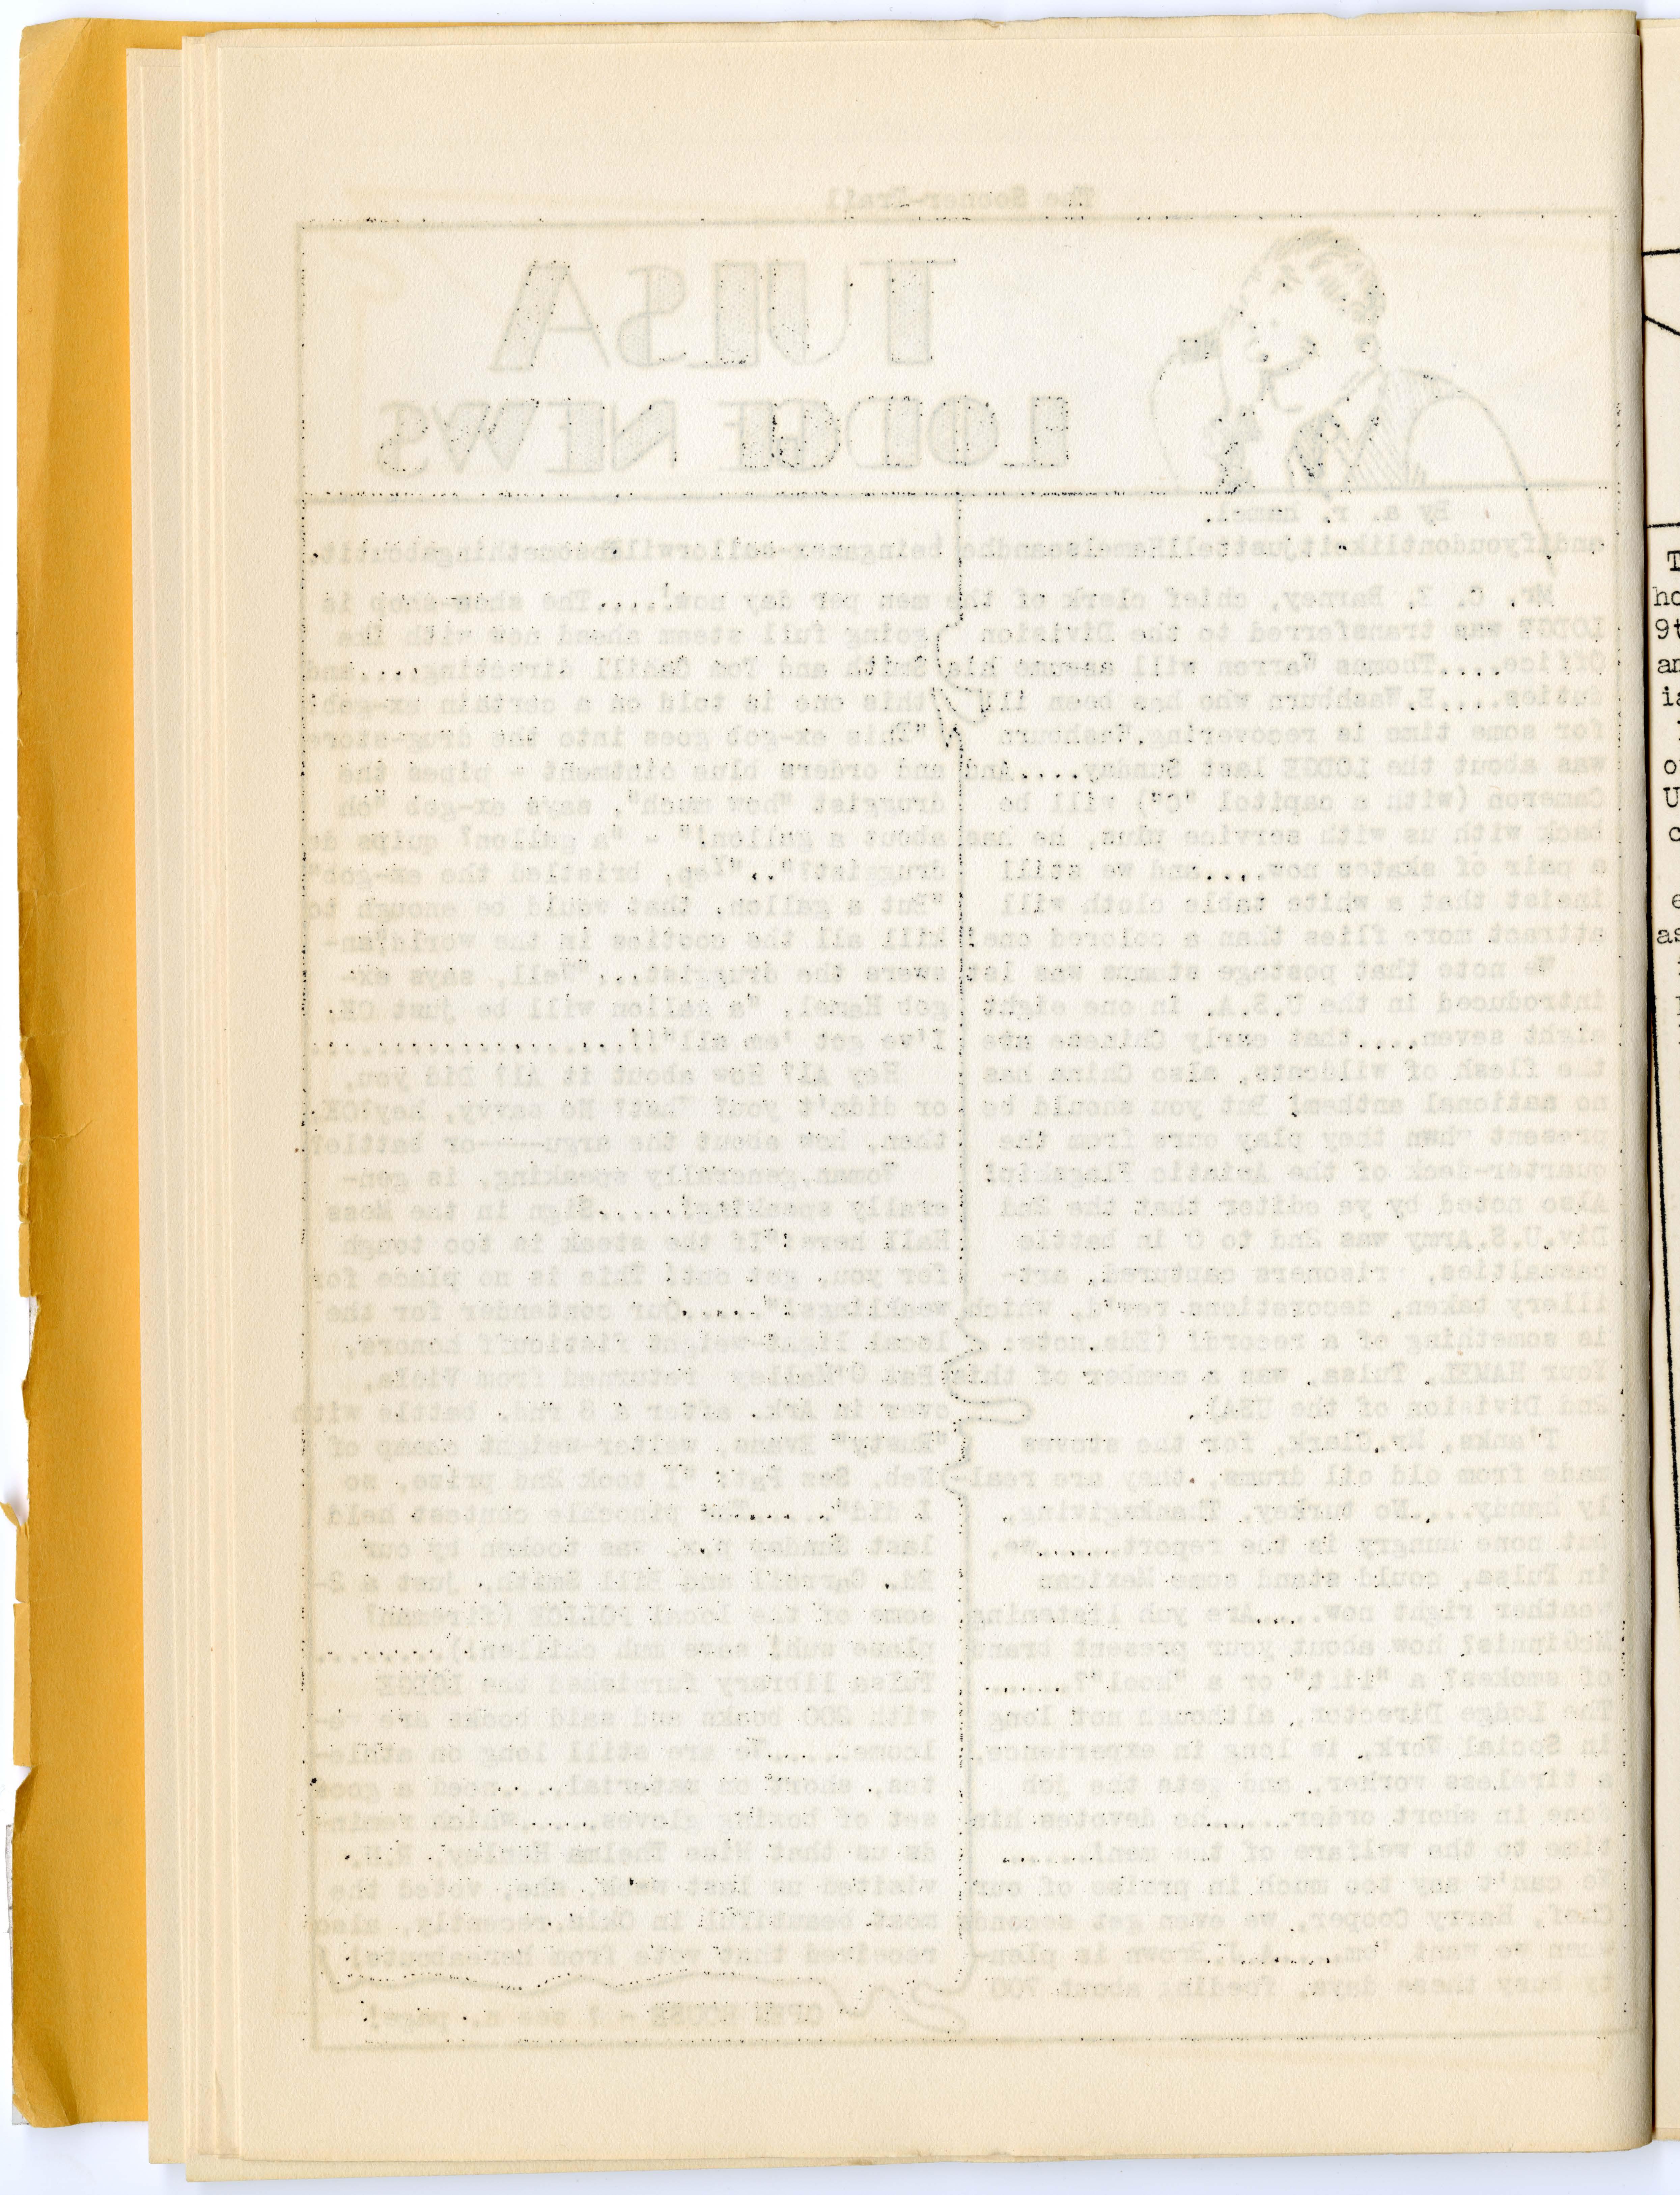 The Sooner-Trail
TULSA
LODGE NEWS
By a. r. hamel.
andifyoudontlikeitjusttellHamelsandhe beinganex-sailorwilldosomethingaboutit.
Mr. C. E. Barney, chief clerk of the
LODGE was transferred to the Division
Office....Thomas Warren will assume his
duties....E.Washburn who has been ill
for some time is recovering.Washburn
was about the LODGE last Sunday....And
Cameron (with a capitol "C") will be
back with us with service plus, he has
a pair of skates now....and we still
insist that a white table cloth will
attract more flies than a colored one!
We note that postage stamps was 1st
introduced in the U.S.A. in one eight
eight seven....that early Chinese ate
the flesh of wildcats, also China has
no national anthem! But you should be
present when they play ours from the
quarter-deck of the Asiatic Flagship!
Also noted by ye editor that the 2nd
Div.U.S.Army was 2nd to 0 in battle
casualties, prisoners captured, art-
illery taken, decorations rev'd, which
is something of a record! (Eds.note:
Your HAMEL, Tulsa, was a member of this
2nd Division of the USA).
T'anks, Mr.Clark, for the stoves
made from old oil drums, they are real-
ly handy....No turkey, Thanksgiving,
but none hungry is the report......we,
in Tulsa, could stand some Mexican
weather right now....Are yuh listening
McGinnis? how about your present brand
of smokes? a "lift" or a "Kool"?......
The Lodge Director, although not long
in Social Work, is long in experience,
a tireless worker, and gets the job
done in short order......he devotes his
time to the welfare of the men!......
We can't say too much in praise of our
Chef, Harry Cooper, we even get seconds
when we want 'em......A.J.Brown is plen-
ty busy these days, feeding about 700
men per day now!....The shoe-shop is
going full steam ahead now with the
Smith and Tom Cahill directing....and
this one is told on a certain ex-gob:
"This ex-gob goes into the drug-store
and orders blue ointment - pipes the
druggist "how much", says ex-gob "oh
about a gallon!" - "a gallon? quips de
druggist?".."Yep, bristled the ex-gob"
"But a gallon, that would be enough to
kill all the cooties in the world"an-
swers the druggist..."Well, says ex-
gob Hamel, "a gallon will be just OK.
I've got 'em all"!!....................
Hey Al? How about it Al? Did you,
or didn't you? That? No savvy, hey?OK
then, how about the argu----or battle?
Woman,generally speaking, is gen-
erally speaking!.....Sign in the Mess
Hall here:"If the steak is too tough
for you, get out! This is no place for
weaklings!".....Our contender for the
local light-weight fisticuff honors,
Pat O'Malley returned from Viola,
over in Ark. after a 8 rnd. battle with
"Rusty" Evans, welter-weight champ of
Neb. Sez Pat: "I took 2nd prize, so
I did".......The pinochle contest held
last Sunday p.m. was tooken by our
Ed. Carroll and Bill Smith. Just a 2-
some of the local POLICE (fireman?
plase suh! save muh chillen!)........
Tulsa library furnished the LODGE
with 200 books and said books are we-
lcome.....We are still long on athle-
tes, short on material....need a good
set of boxing gloves.....Which remin-
ds us that Miss Thelma Hurley, R.N.
visited us last week, she, voted the
most beautiful in Okla.recently, also
received that vote from hereabouts!
OPEN HOUSE - ? see n. page!
T
ho
9t
an
ia
o
U
c
e
as